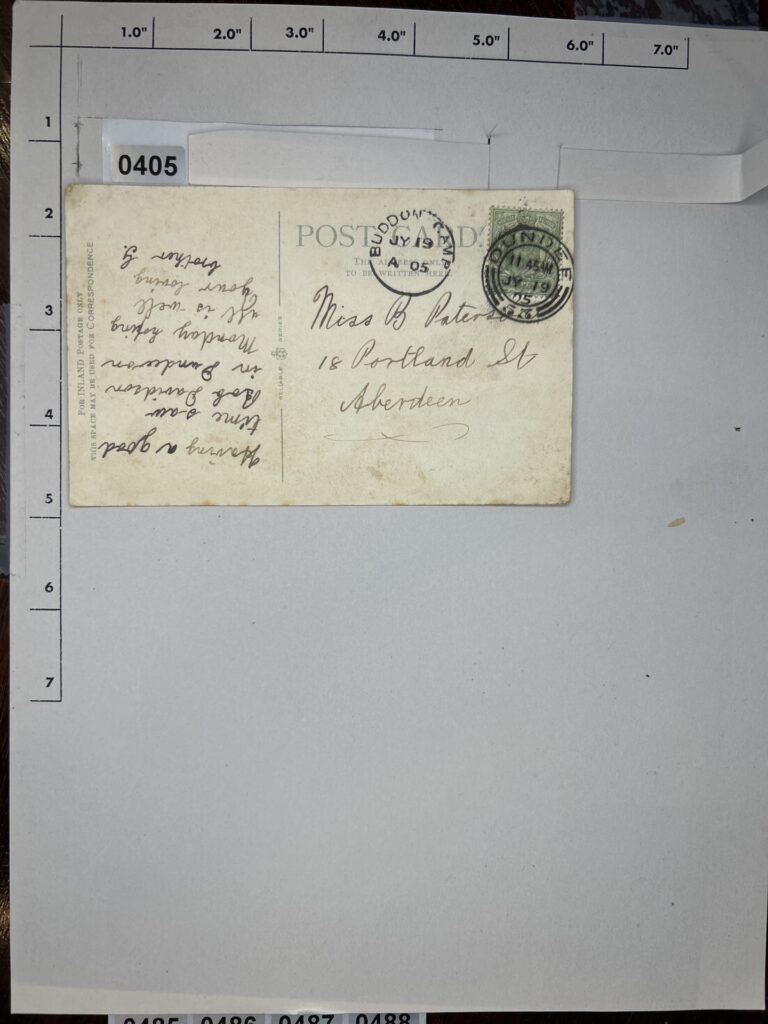 1.0" 2.0" 3.0" 4.0" 5.0" 6.0" 7.0"
1
2
3
4
5
6
7
0405
FOR INLAND POSTAGE ONLY
THIS SPACE MAY BE USED FOR CORRESPONDENCE
Having a good
time saw
Bob Davidson
in Dundee on
Monday hoping
all is well
your loving
brother G.
RELIABLE SERIES
POST CARD.
THE ADDRESS ONLY
TO BE WRITTEN HERE.
BUDDON CAMP
JY 19
A 05
DUNDEE
11 45AM
JY 19
05
Miss B Paterso
18 Portland St
Aberdeen
0485 0486 0487 0488